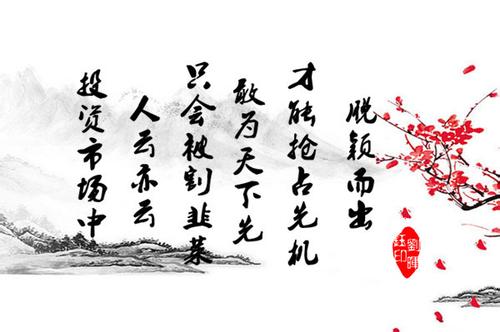 投资市场中
人云亦云
只会被割韭菜
敢为天下先
才能抢占先机
脱颖而出
劉
印